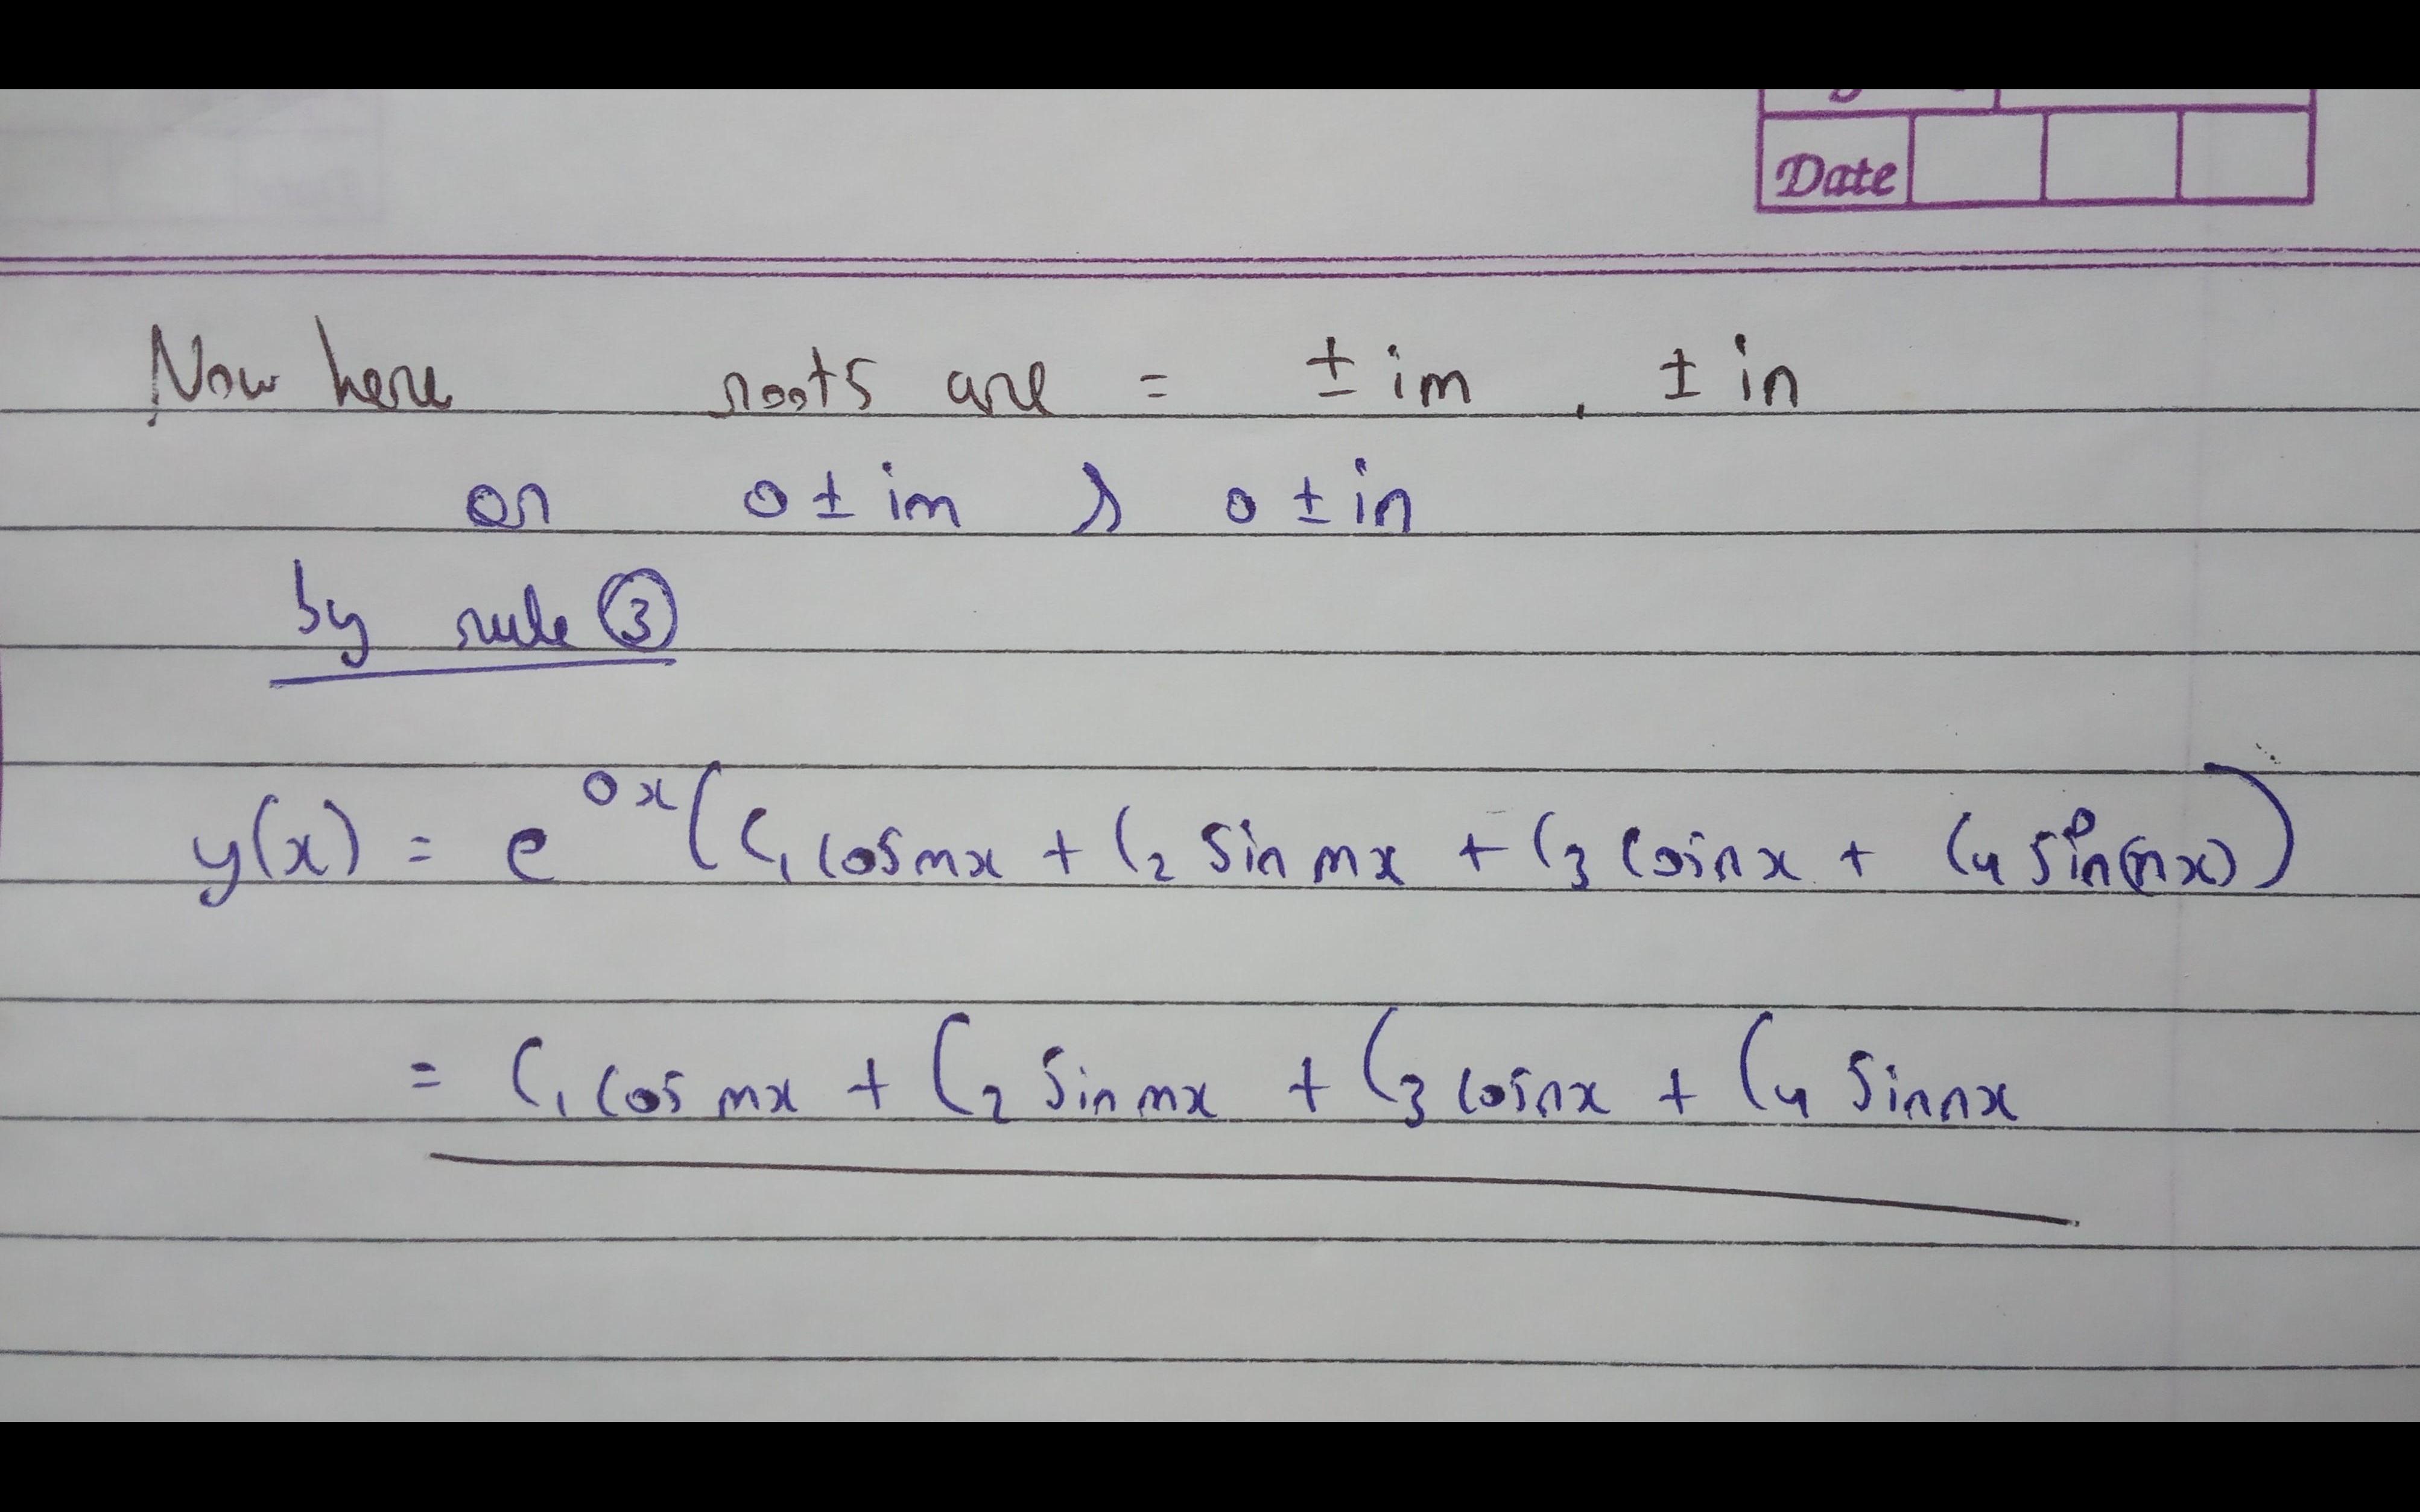 Date
Now here roots are = ± im , ± in
or 0 ± im & 0 ± in
by rule ③
y(x) = e^{0x}(C₁ cosmx + C₂ sin mx + C₃ cosnx + C₄ sin(nx))
= C₁ cos mx + C₂ sin mx + C₃ cosnx + C₄ sinnx